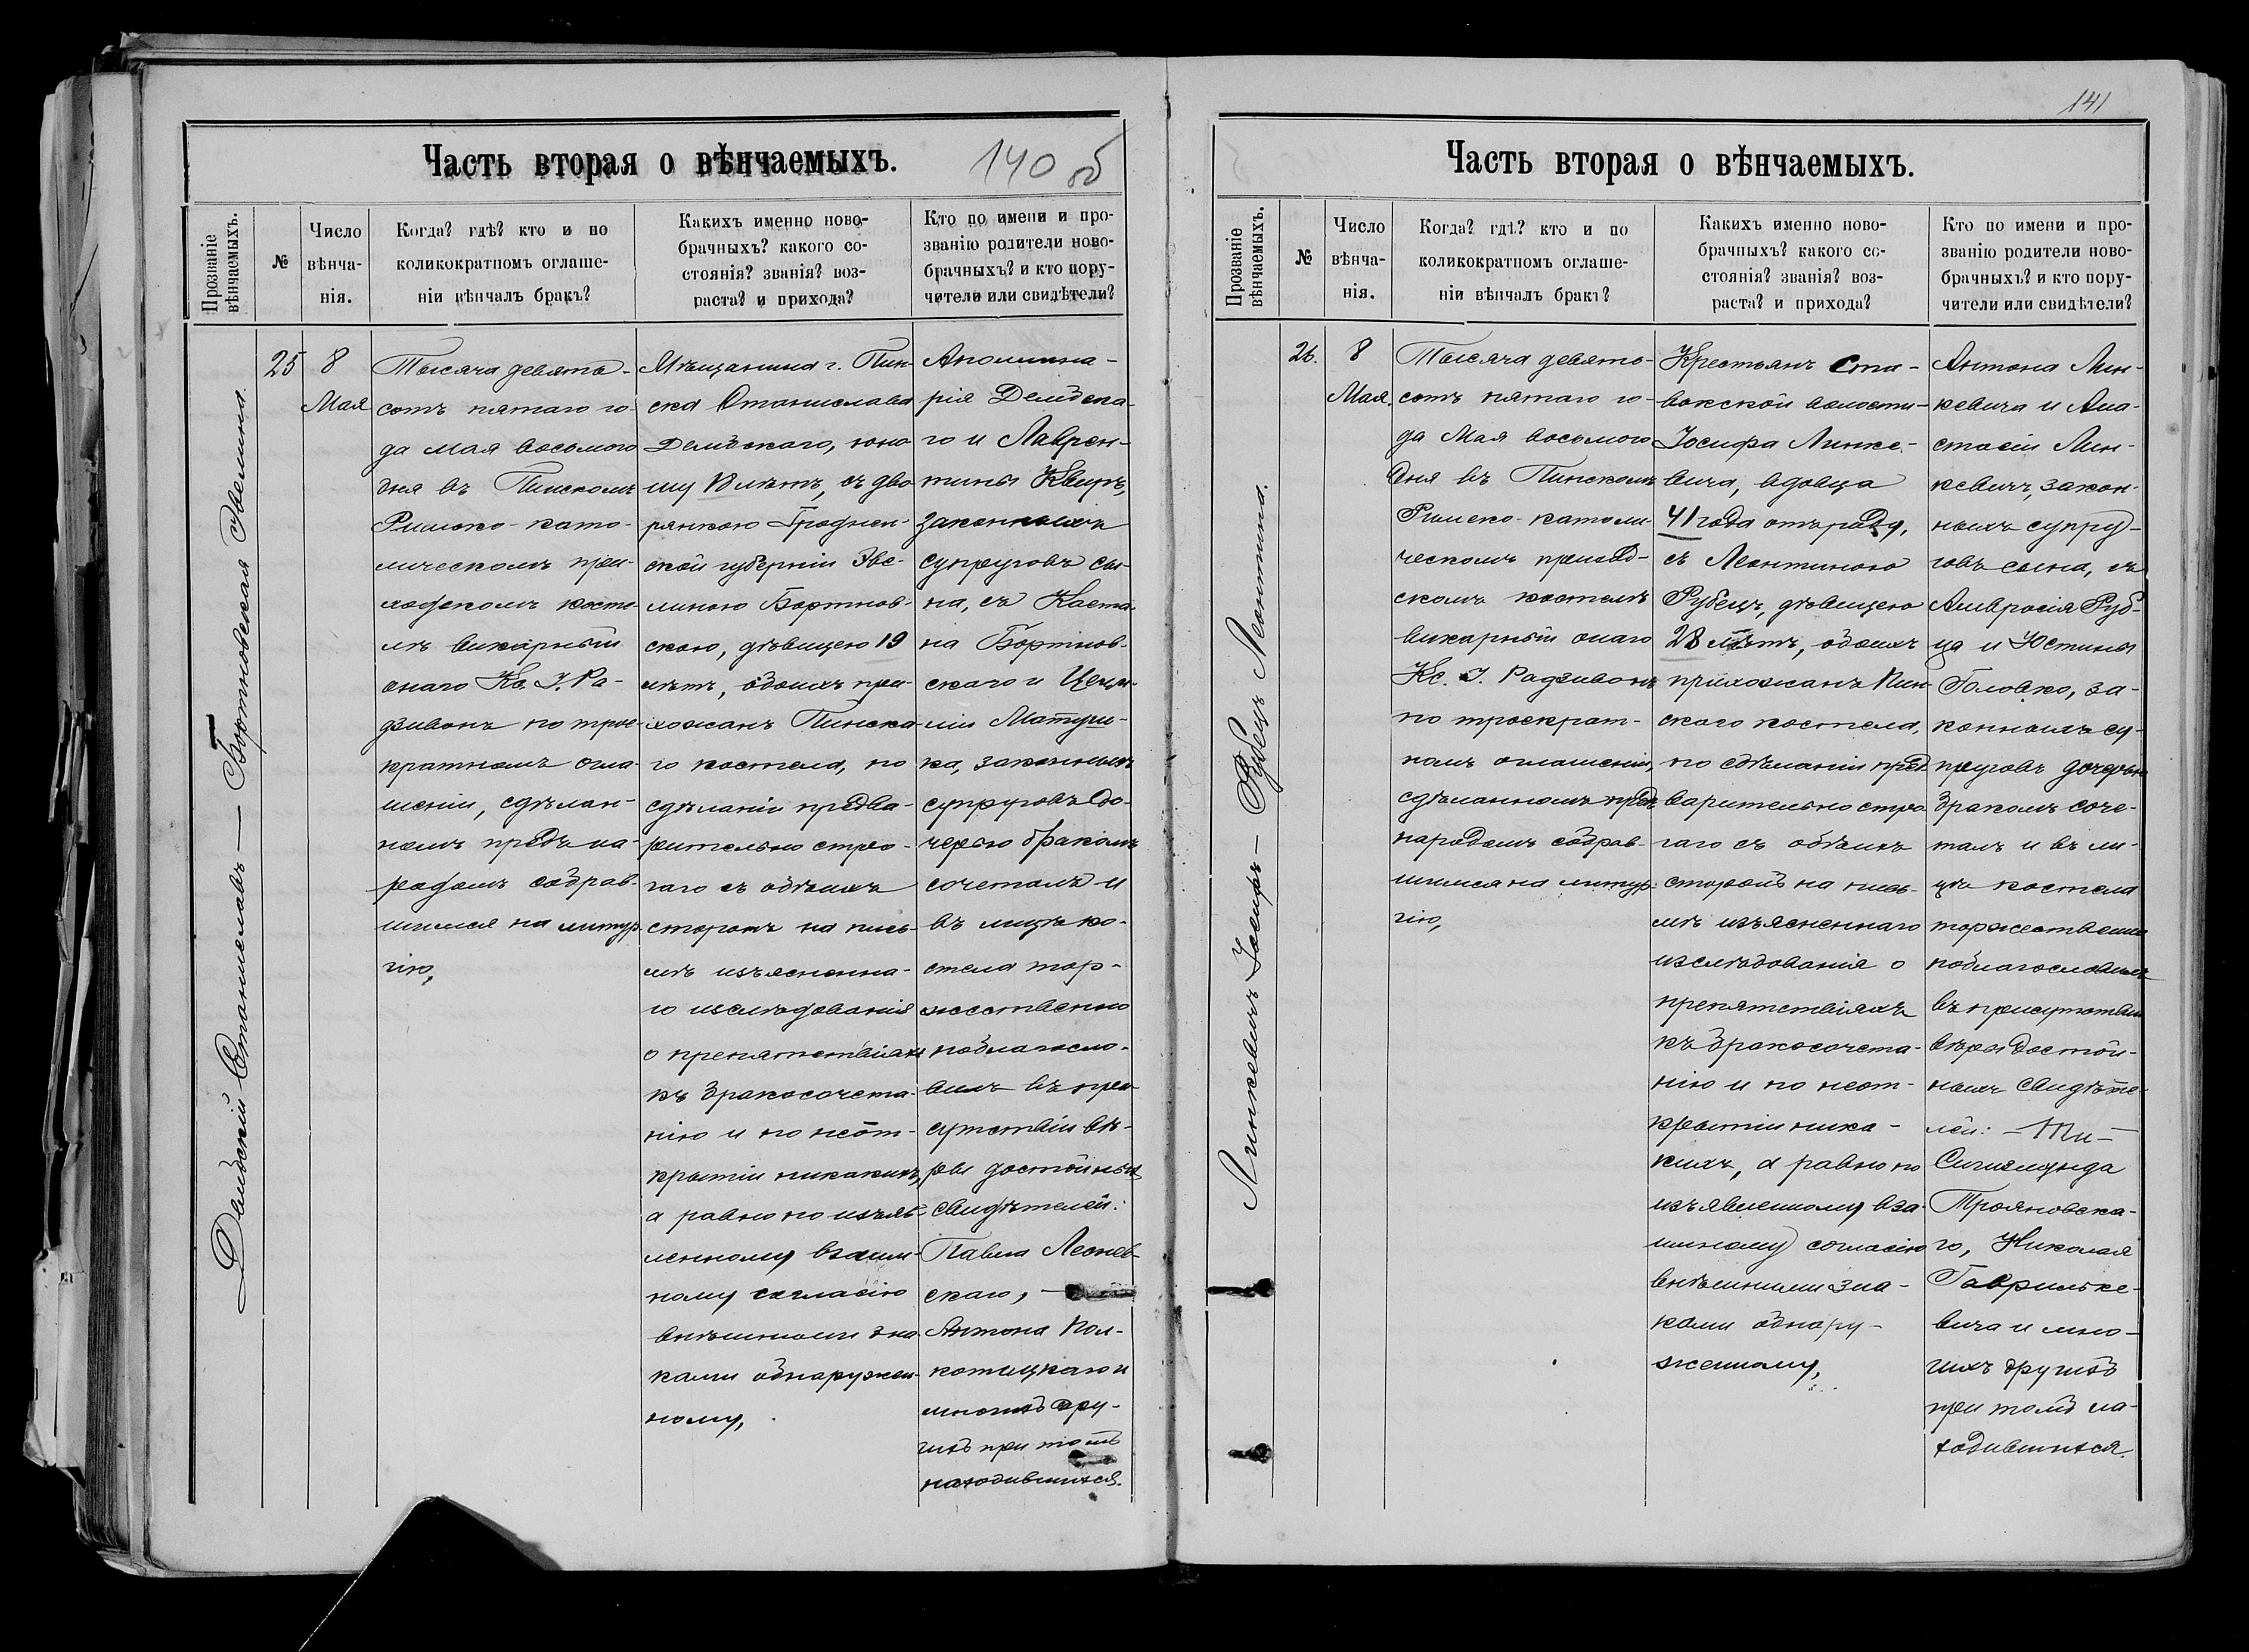 Часть вторая о вѣнчаемыхъ.
140 об
Прозваніе
вѣнчаемыхъ.
№
Число
вѣнча-
нія.
Когда? гдѣ? кто и по
коликократномъ оглаше-
ніи вѣнчалъ бракъ?
Какихъ именно ново-
брачныхъ? какого со-
стоянія? званія? воз-
раста? и прихода?
Кто по имени и про-
званію родители ново-
брачныхъ? и кто пору-
чители или свидѣтели?
Дембскій Станиславъ — Бортновская Эвелина.
25
8
Мая
Тысяча девять-
сотъ пятаго го-
да мая восьмого
дня въ Пинскомъ
Римско-като-
лическомъ при-
ходскомъ косте-
лѣ викарный
онаго Кс. І. Ра-
дзивонъ по трое-
кратномъ огла-
шеніи, сдѣлан-
номъ предъ на-
родомъ собрав-
шимся на литур-
гію,
Мѣщанина г. Пин-
ска Станислава
Дембскаго, юно-
шу лѣтъ, съ дво-
рянкою Гроднен-
ской губерніи Эве-
линою Бортнов-
скою, дѣвицею 19
лѣтъ, обоихъ при-
хожанъ Пинска-
го костела, по
сдѣланіи предва-
рительно стро-
гаго съ обѣихъ
сторонъ на пись-
мѣ изъясненна-
го изслѣдованія
о препятствіяхъ
къ бракосочета-
нію и по неот-
крытіи никакихъ,
а равно по изъяв-
ленному взаим-
ному согласію
внѣшними зна-
ками обнаружен-
ному,
Аполлина-
рія Дембска-
го и Лаврен-
тины Квиръ,
законныхъ
супруговъ сы-
на, съ Каэта-
на Бортнов-
скаго и Цеци-
ліи Матуш-
ка, законныхъ
супруговъ до-
черью бракомъ
сочеталъ и
въ лицѣ ко-
стела тор-
жественно
поблагосло-
вилъ въ при-
сутствіи вѣ-
ры достойныхъ
свидѣтелей:
Павла Леснев-
скаго, —
Антона Пол-
котицкаго и
многихъ дру-
гихъ при томъ
находившихся.
141
Часть вторая о вѣнчаемыхъ.
Прозваніе
вѣнчаемыхъ.
№
Число
вѣнча-
нія.
Когда? гдѣ? кто и по
коликократномъ оглаше-
ніи вѣнчалъ бракъ?
Какихъ именно ново-
брачныхъ? какого со-
стоянія? званія? воз-
раста? и прихода?
Кто по имени и про-
званію родители ново-
брачныхъ? и кто пору-
чители или свидѣтели?
Линкевичъ Іосифъ — Рубецъ Леонтина.
26.
8
Мая.
Тысяча девять-
сотъ пятаго го-
да Мая восьмого
дня въ Пинскомъ
Римско-католи-
ческомъ приход-
скомъ костелѣ
викарный онаго
Кс. І. Радзивонъ
по троекрат-
номъ оглашеніи,
сдѣланномъ предъ
народомъ собрав-
шимся на литур-
гію,
Крестьянъ Ста-
вокской волости
Іосифа Линке-
вича, вдовца
41 года отъ роду,
съ Леонтиною
Рубецъ, дѣвицею
28 лѣтъ, обоихъ
прихожанъ Пин-
скаго костела,
по сдѣланіи пред-
варительно стро-
гаго съ обѣихъ
сторонъ на пись-
мѣ изъясненнаго
изслѣдованія о
препятствіяхъ
къ бракосочета-
нію и по неот-
крытіи ника-
кихъ, а равно по
изъявленному вза-
имному согласію
внѣшними зна-
ками обнару-
женному,
Антона Лин-
кевича и Ана-
стасіи Лин-
кевичъ, закон-
ныхъ супру-
говъ сына, съ
Амвросія Руб-
ца и Юстины
Головко, за-
конныхъ су-
пруговъ дочерью
бракомъ соче-
талъ и въ ли-
цѣ костела
торжественно
поблагословилъ
въ присутствіи
вѣры достой-
ныхъ свидѣте-
лей: —
Сигизмунда
Трояновска-
го, Николая
Гаврильке-
вича и мно-
гихъ другихъ
при томъ на-
ходившихся.